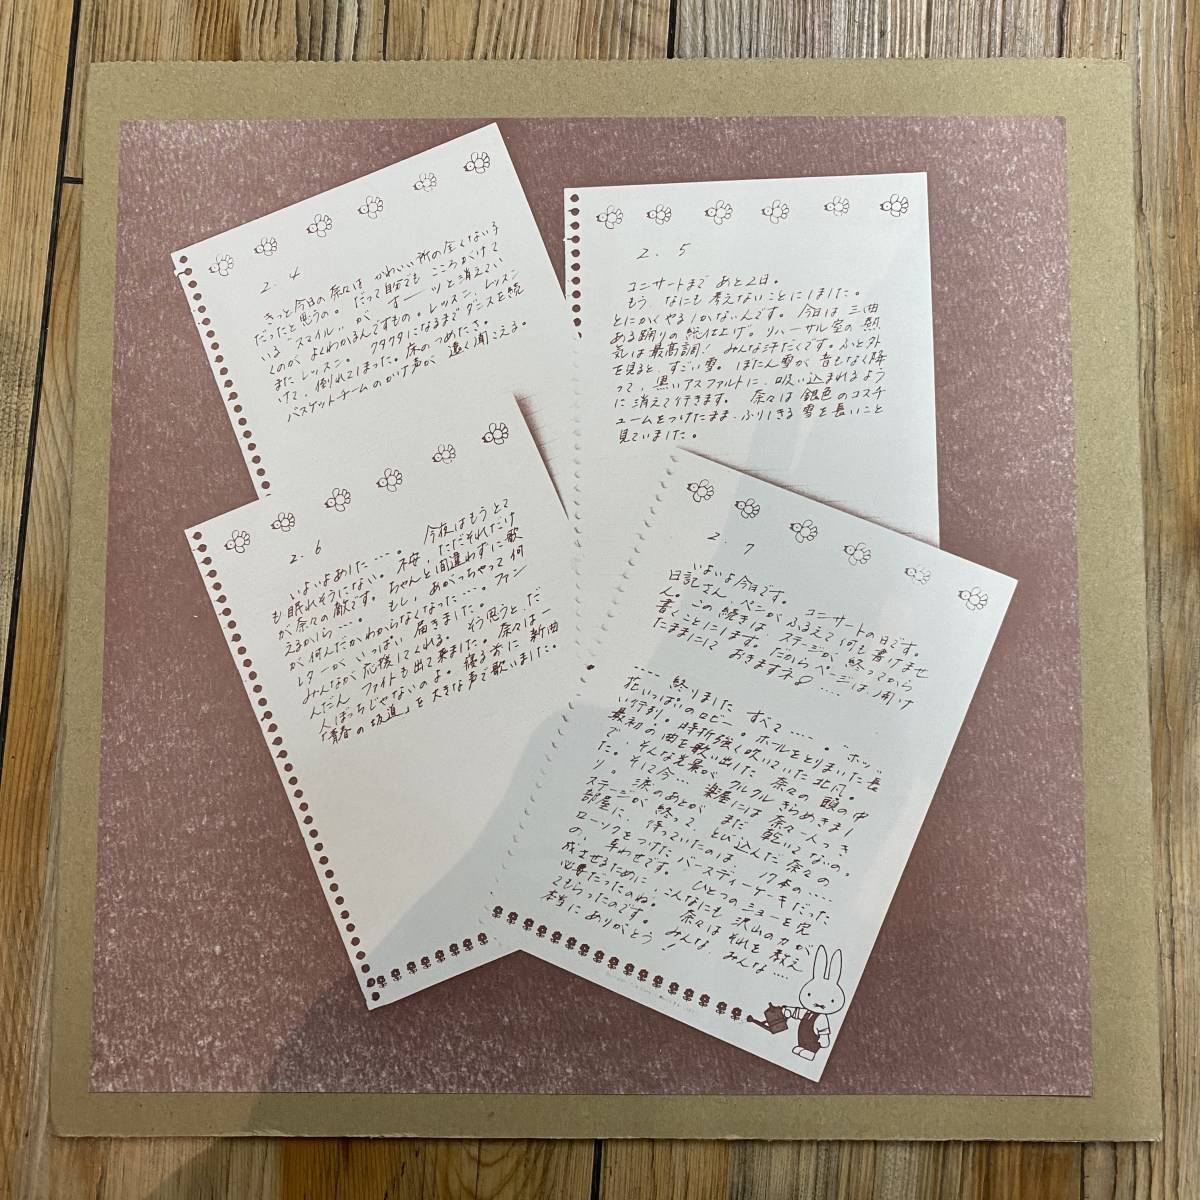 2.4
きっと今日の奈々は かわいい所の全くない子
だったと思うの。だって自分でも こころがけて
いる "スマイル" が すーーッと消えてい
くのが よくわかるんですもの。レッスン、レッスン
またレッスン。クタクタになるまでダンスを続
けて、倒れてしまった。床のつめたさ。
バスケットチームのかけ声が 遠く聞こえる。
2.5
コンサートまで あと2日。
もう、なにも考えないことにしました。
とにかくやるしかないんです。今日は 三曲
ある踊りの総仕上げ。リハーサル室の熱
気は最高調！ みんな汗だくです。ふと外
を見ると、すごい雪。ぼたん雪が 音もなく降
って、黒いアスファルトに、吸い込まれるよう
に消えて行きます。奈々は 銀色のコスチ
ュームをつけたまま、ふりしきる雪を長いこと
見ていました。
2.6
いよいよあした‥‥。 今夜はもうとて
も眠れそうにない。不安、ただそれだけ
が奈々の敵です。ちゃんと間違わずに歌
えるかしら‥‥。 もし、あがっちゃって 何
が何んだかわからなくなったら‥‥。ファン
レターが いっぱい 届きました。
みんなが 応援してくれる。そう思うと、だ
んだん ファイトも出て来ました。奈々は 一
人ぼっちじゃないのよ。寝る前に 新曲
「青春の坂道」を 大きな声で歌いました。
2.7
いよいよ今日です。コンサートの日です。
日記さん、ペンがふるえて何も書けませ
ん。この続きは、ステージが終ってから
書くことにします。だからページは、開け
たままにして おきますネ♡‥‥
‥‥ 終りました すべて‥‥‥。
花いっぱいのロビー。ホールをとりまいた長
い行列。時折強く吹いていた北風。
最初の曲を歌い出した 奈々の 頭の中
で、そんな光景が クルクル きらめきまし
た。そして今‥‥ 楽屋には 奈々一人っき
り。涙のあとが まだ、乾いてないの。
ステージが 終って、とび込んだ 奈々の
部屋に、待っていたのは、17本の‥‥
ローソクをつけた バースディーケーキだった
の。幸わせです。 ひとつの ショーを完
成させるために、こんなにも 沢山の力が
必要だったのね。 奈々は それを 教え
てもらったのです。 みんな、みんな‥‥
本当に ありがとう！